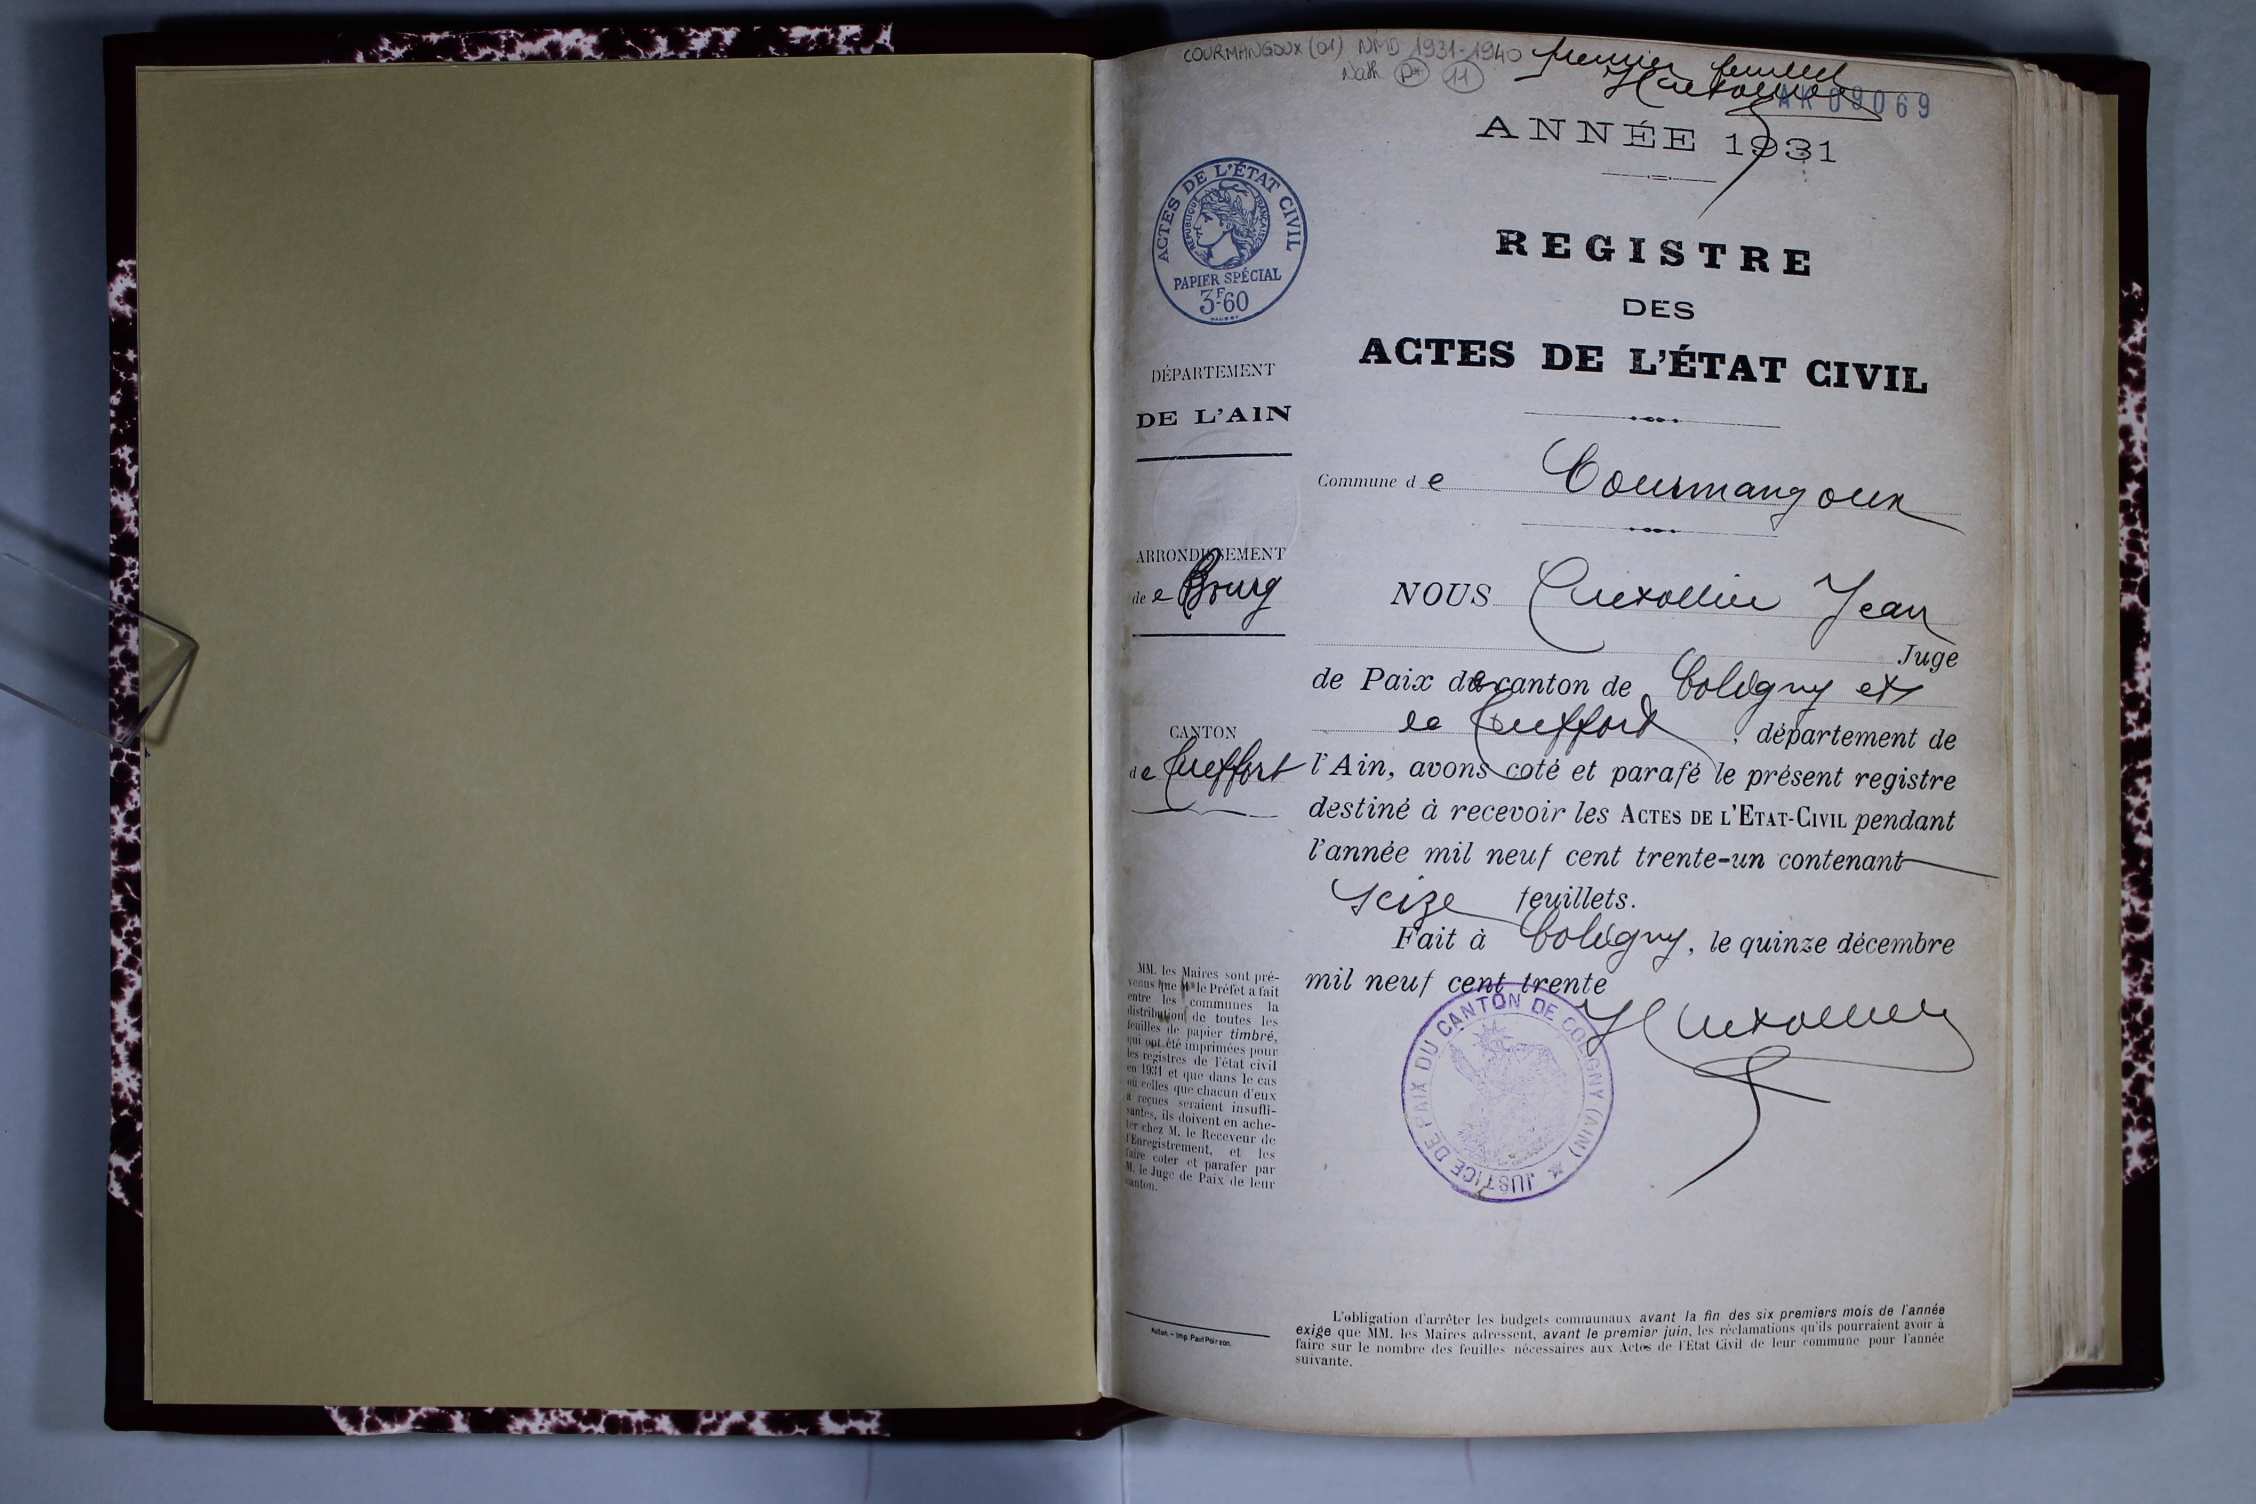 COURMANGOUX (01) NMD 1931-1940
Nath P* 11
premier feuillet
AK 09069
ANNÉE 1931
ACTES DE L'ÉTAT CIVIL
RÉPUBLIQUE FRANÇAISE
PAPIER SPÉCIAL
3F.60
REGISTRE
DES
ACTES DE L'ÉTAT CIVIL
DÉPARTEMENT
DE L'AIN
Commune de Courmangoux
ARRONDISSEMENT
de e Bourg
CANTON
de Treffort
NOUS Jean
Juge
de Paix de canton de Coligny et
de Treffort, département de
l'Ain, avons coté et parafé le présent registre
destiné à recevoir les ACTES DE L'ETAT-CIVIL pendant
l'année mil neuf cent trente-un contenant
seize feuillets.
Fait à Coligny, le quinze décembre
mil neuf cent trente
JUSTICE DE PAIX DU CANTON DE COLIGNY (AIN)
MM. les Maires sont pré-
venus que Mr le Préfet a fait
entre les communes la
distribution de toutes les
feuilles de papier timbré,
qui ont été imprimées pour
les registres de l'état civil
en 1931 et que dans le cas
où celles que chacun d'eux
a reçues seraient insuffi-
santes, ils doivent en ache-
ter chez M. le Receveur de
l'Enregistrement, et les
faire coter et parafer par
M. le Juge de Paix de leur
canton.
Autun. - Imp. Paul Poirson.
L'obligation d'arrêter les budgets communaux avant la fin des six premiers mois de l'année
exige que MM. les Maires adressent, avant le premier juin, les réclamations qu'ils pourraient avoir à
faire sur le nombre des feuilles nécessaires aux Actes de l'Etat Civil de leur commune pour l'année
suivante.